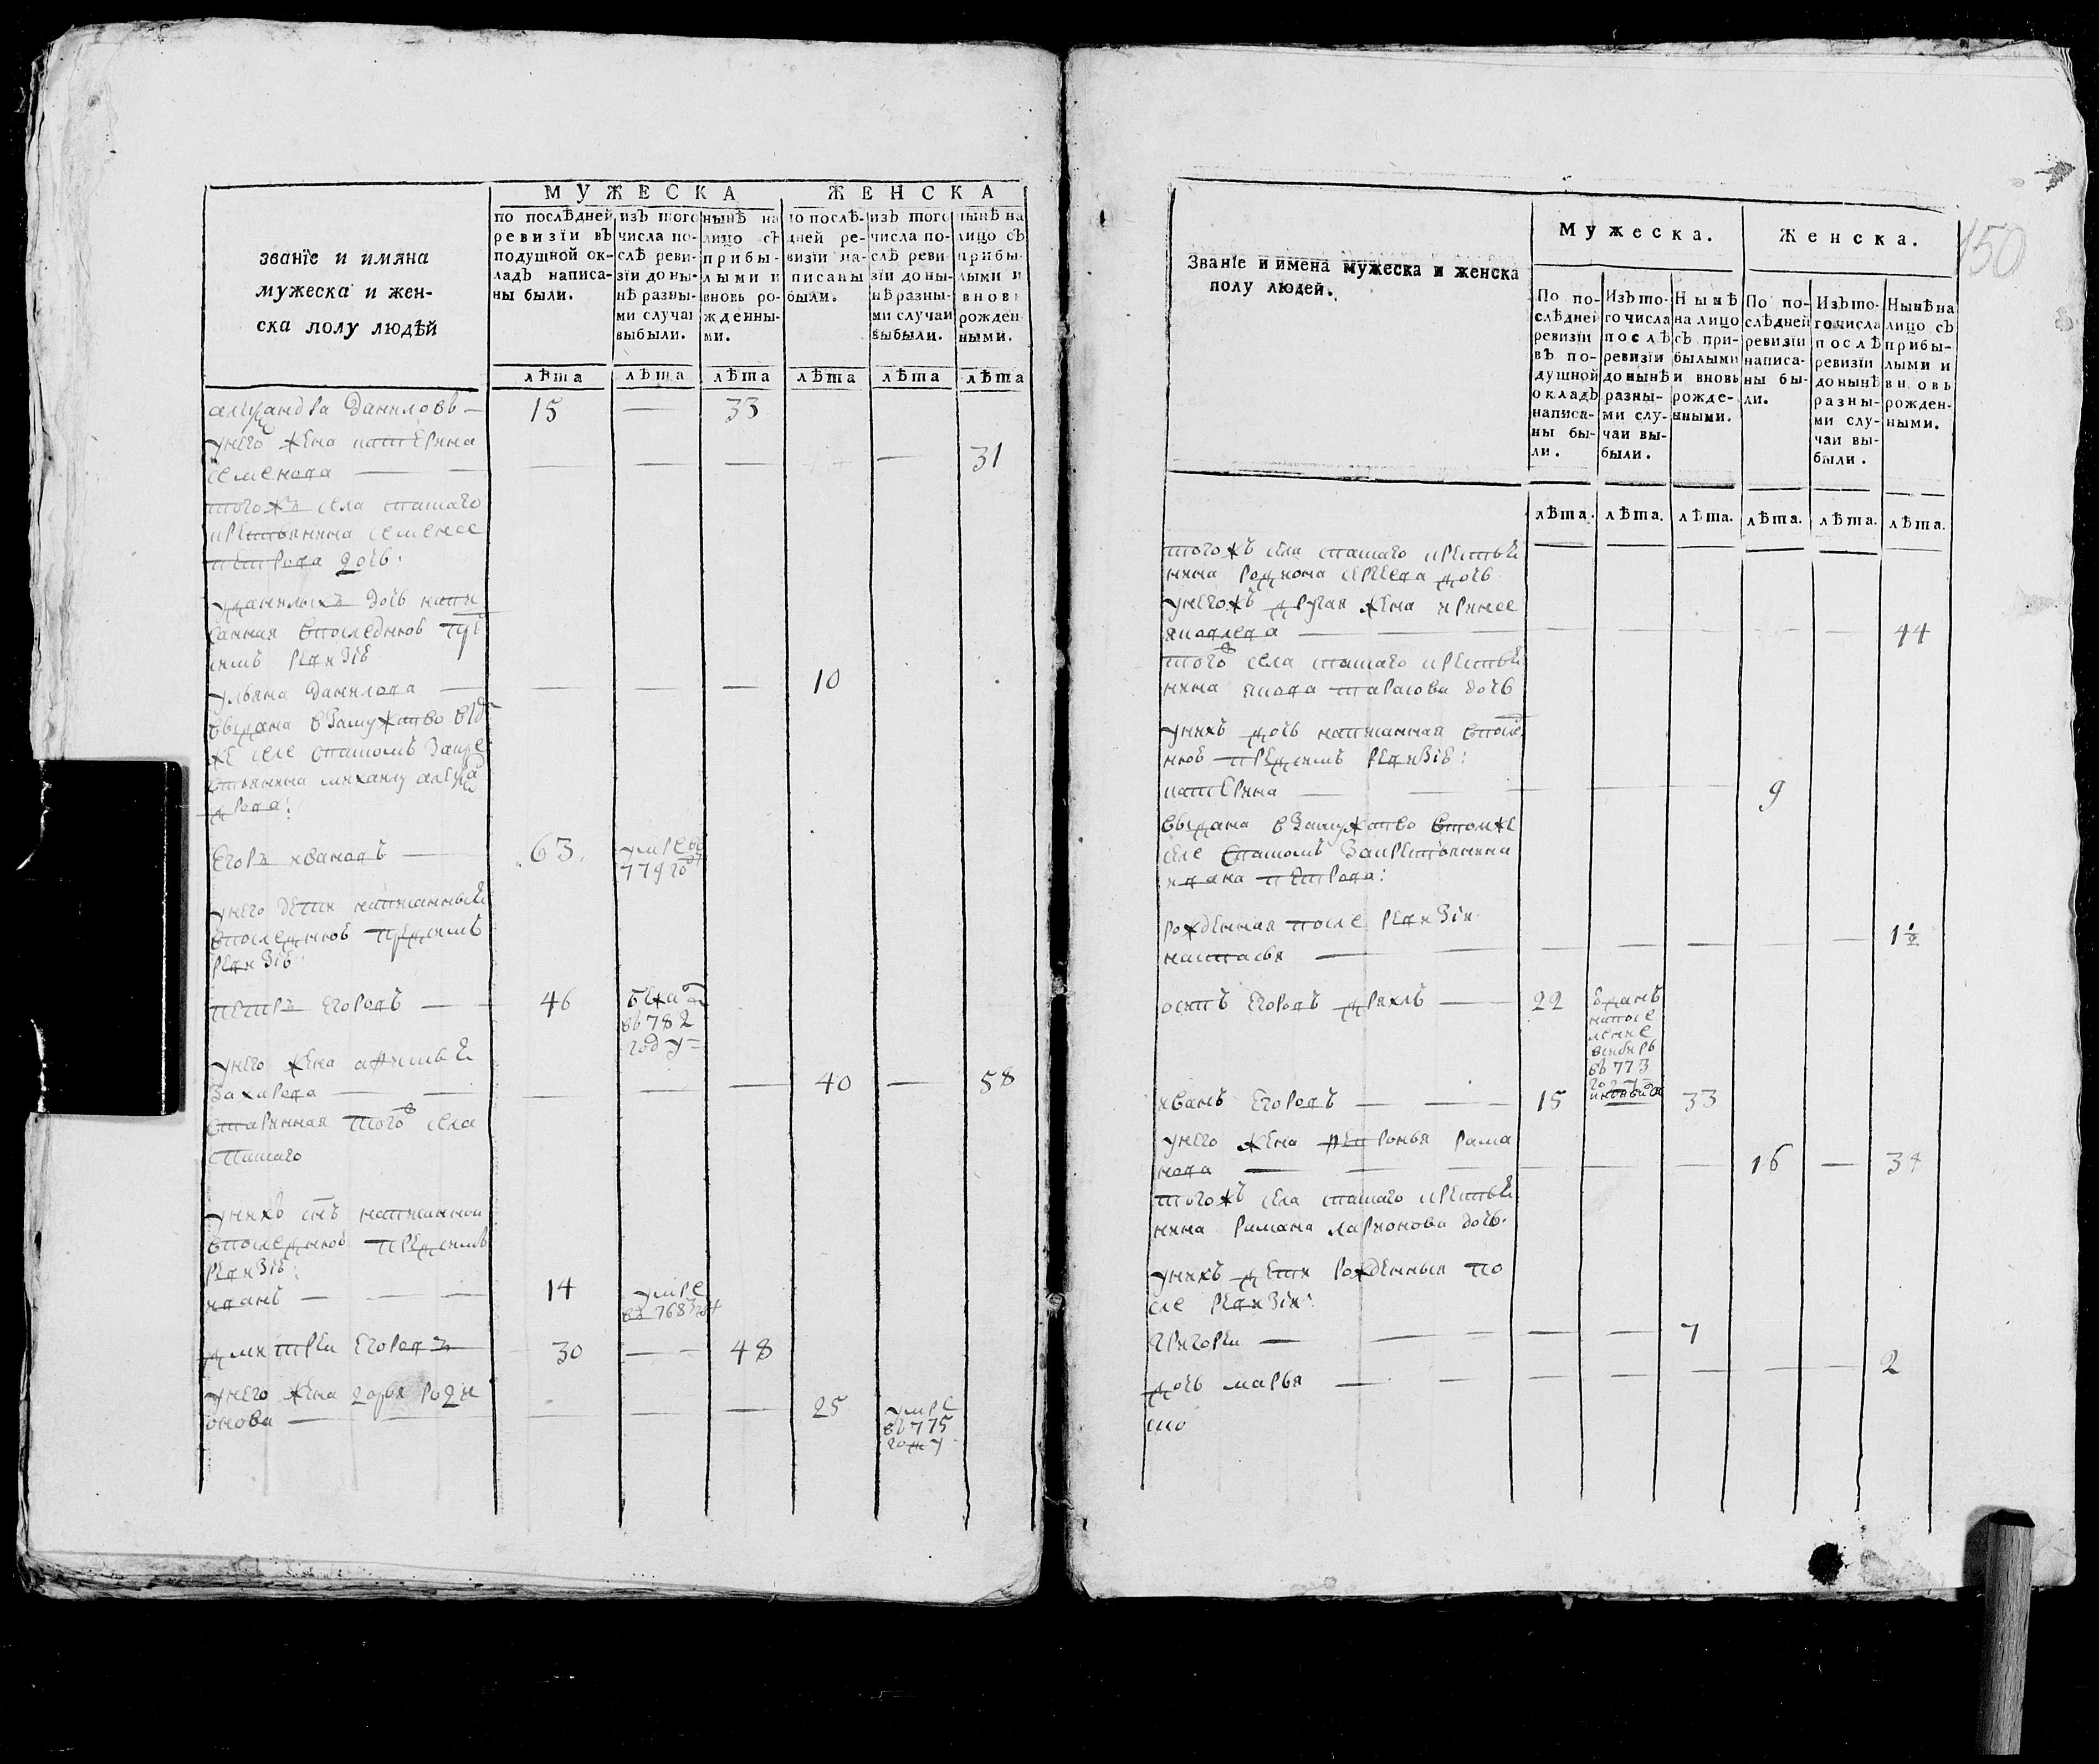 МУЖЕСКА
ЖЕНСКА
званїе и имяна
мужеска и жен-
ска полу людѣй
по послѣдней
ревизїи въ
подушной ок-
ладъ написа-
ны были.
изъ того
числа по-
слѣ реви-
зїи доны-
нѣ разны-
ми случаи
выбыли.
нынѣ на
лицо съ
прибы-
лыми и
вновь ро-
жденны-
ми.
по послѣ-
дней ре-
визїи на-
писаны
были.
изъ того
числа по-
слѣ реви
зїи доны-
нѣ разны-
ми случаи
выбыли.
нынѣ на
лицо съ
прибы
лыми и
вновь
рожден
ными.
лѣта лѣта лѣта лѣта лѣта лѣта
Даниловъ — 15 — 33
унего жена катерина
семенова — — — — — — 31
тогожъ села спашаго
крестьянина
петрова дочь:
уданилыхъ дочь напи
санная впоследнюю
ревизiю
ульяна данилова — — — — 10
выдана взамужство
же селе спашомъ закре
стьянина михаилу
дрова:
Егоръ ивановъ — 63. умре въ
779
унего дети написанныи
впоследнюю предсимъ
ревизiю
петръ егоровъ — 46
въ 782
году
унего жена
захарова — — — — — 40 — 58
старинная того села
спашаго
унихъ снъ написанной
впоследнюю предсимъ
ревизiю:
иванъ — — — 14 умре
въ 768
дмитреи егоровъ 30 — 48
унего жена дарья роди
онова — — — — — 25 умре
въ 775
году
150
Мужеска.
Женска.
Званїе и имена мужеска и женска
полу людей.
По по-
слѣдней
ревизїи
въ по-
душной
окладъ
написа-
ны бы-
ли.
Изъ то-
го числа
послѣ
ревизїи
до нынѣ
разны-
ми слу-
чаи вы-
были.
Нынѣ
на лицо
съ при-
былыми
и вновь
рожде-
нными.
По по-
слѣдней
ревизїи
написа-
ны бы-
ли.
Изъ то-
го числа
послѣ
ревизїи
до нынѣ
разны-
ми слу-
чаи вы-
были.
Нынѣ на
лицо съ
прибы-
лыми и
вновь
рожден-
ными.
лѣта. лѣта. лѣта. лѣта. лѣта. лѣта.
тогожъ села спашаго крестья
нина родиона сергеева дочь
унегожъ другая жена
яковлева — — — — — — — — 44
того села спашаго крестья
нина якова тарасова дочь
унихъ дочь написанная
предсимъ ревизiю:
катерина — — — — — 9
выдана взамужство втомже
селе спашомъ закрестьянина
ивана петрова:
рожденная после ревизiи
настасья — — — — — — — 1 1/2
осипъ егоровъ — 22 вданъ
напосе
ление
всибирь
въ 773
иванъ егоровъ — — — 15 33
унего жена рама
нова — — — — — — 16 — 34
тогожъ села спашаго крестья
нина рамана ларионова дочь.
унихъ дети рожденныя по
сле ревизiи:
григореи — — — — — 7
дочь марья — — — — — — 2